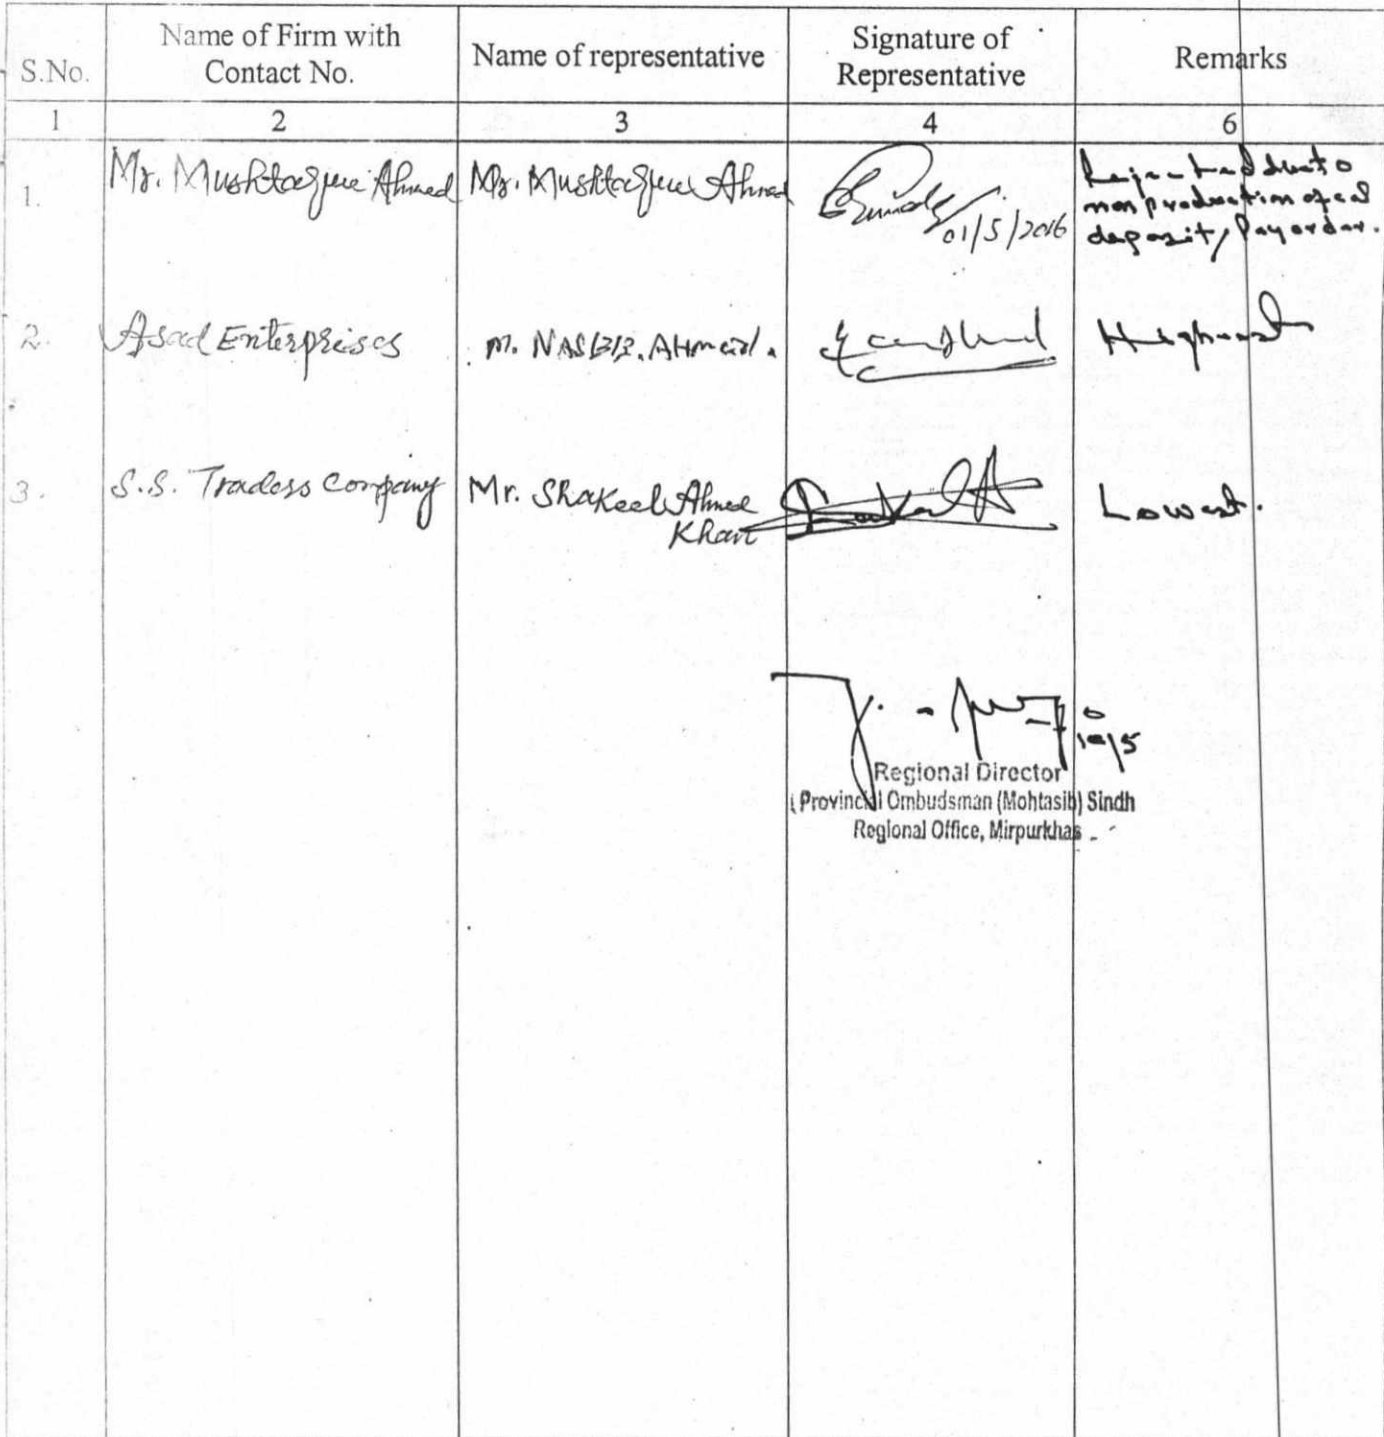 S.No.
Name of Firm with
Contact No.
Name of representative
Signature of
Representative
Remarks
1
2
3
4
6
1.
Mr. Mushtaque Ahmed
Mr. Mushtaque Ahmed
01/5/2016
Rejected due to
non production of
deposit/Payorder.
2.
Asad Enterprises
M. NASEER. AHmed.
Highest
3.
S.S. Traders Company
Mr. Shakeel Ahmed
Khan
Lowest.
10/5
Regional Director
Provincial Ombudsman (Mohtasib) Sindh
Regional Office, Mirpurkhas